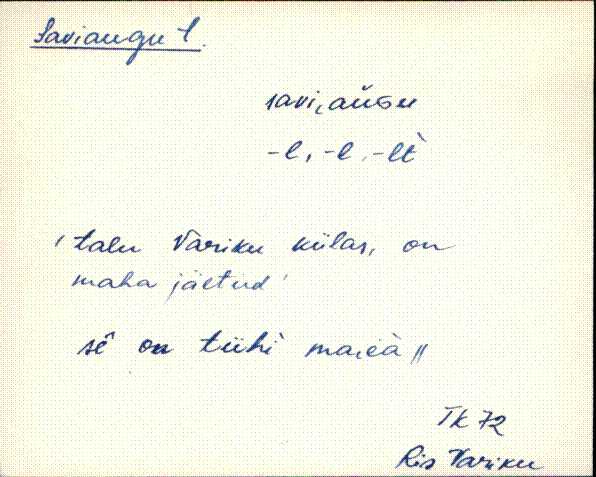 Saviaugu t.
savi,aùGu
-l, -l, -lt̀
'talu Variku külas, on
maha jäetud'
sē on tühi ma,ja ||
TK 72
Ris Variku